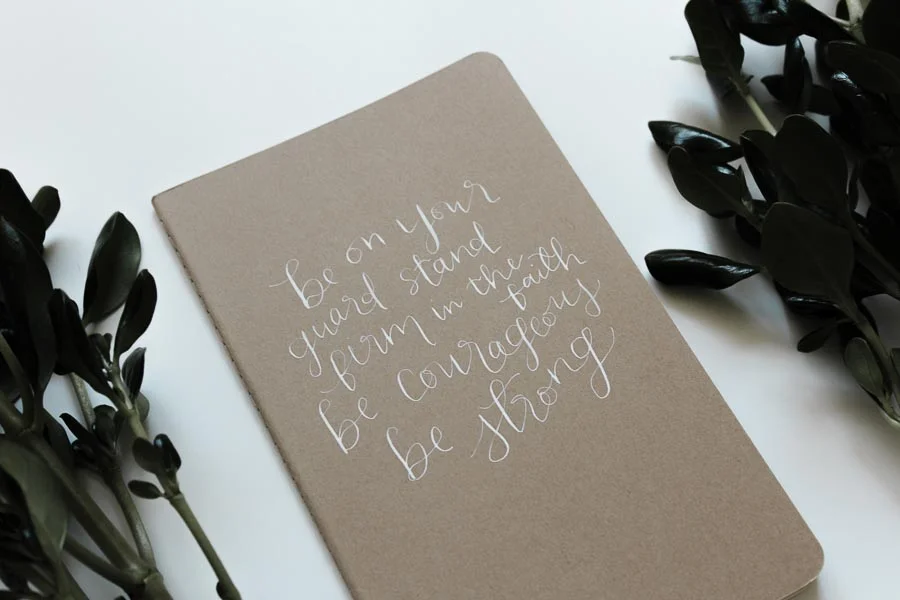 be on your
guard stand
firm in the faith
be courageous
be strong